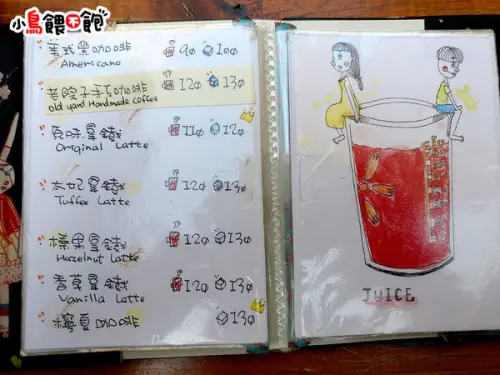 小鳥餵不飽
美式黑咖啡 90 100
Americano
老院子手工咖啡 120 130
old yard Handmade coffee
原味拿鐵 110 120
Original Latte
太妃拿鐵 120 130
Tuffee Latte
榛果拿鐵 120 130
Hazelnut Latte
香草拿鐵 120 130
Vanilla Latte
檸夏咖啡 130
JUICE